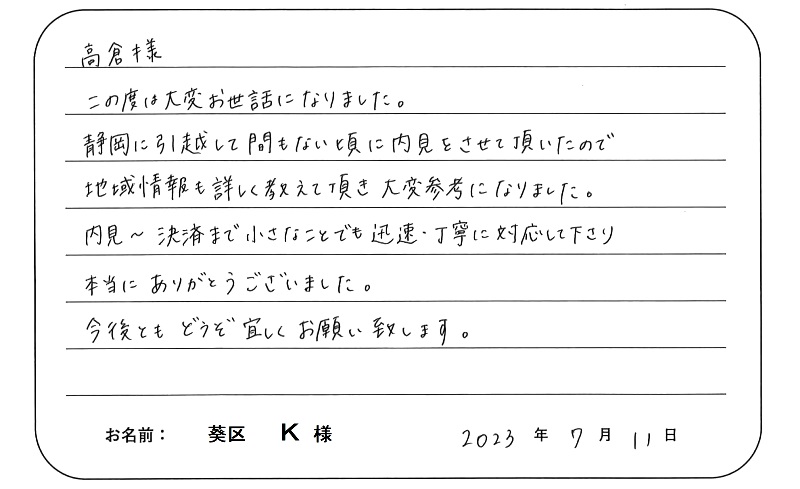 高倉様
この度は大変お世話になりました。
静岡に引越して間もない頃に内見をさせて頂いたので
地域情報も詳しく教えて頂き大変参考になりました。
内見～決済まで小さなことでも迅速・丁寧に対応して下さり
本当にありがとうございました。
今後ともどうぞ宜しくお願い致します。
お名前： 葵区 K 様 2023 年 7 月 11 日